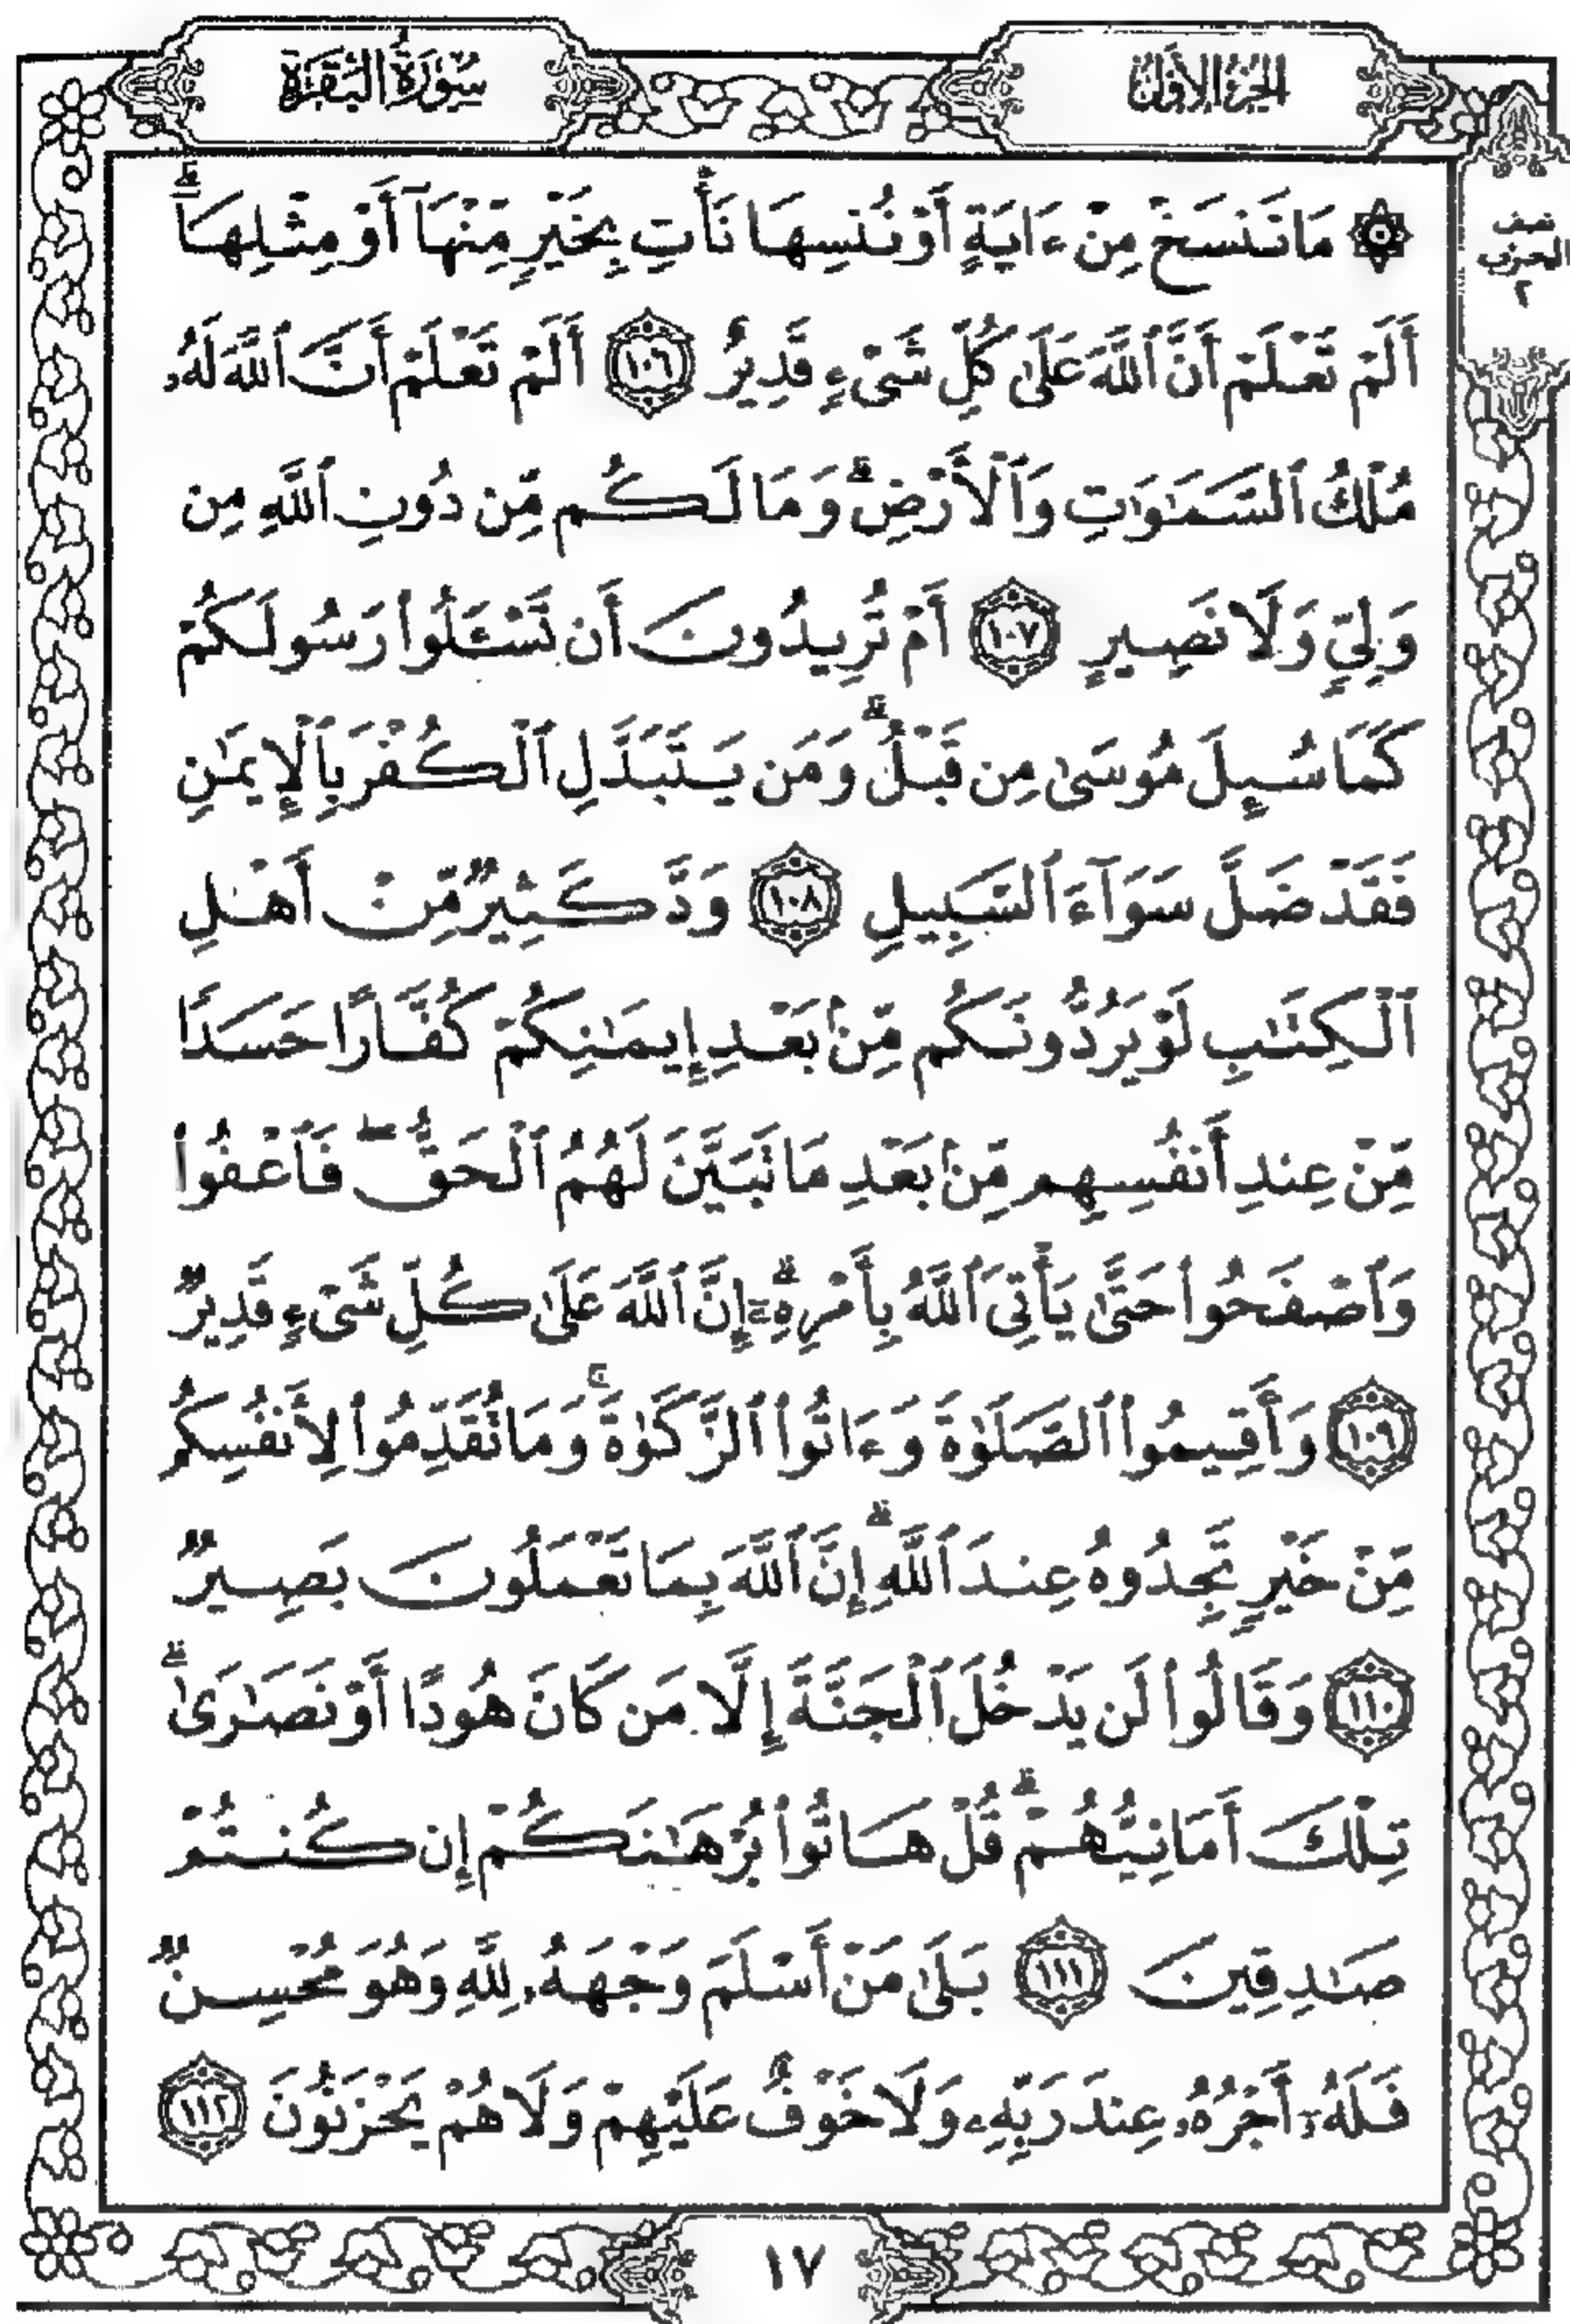 الجزء الأول
سورة البقرة
نصف
الحزب
٢
۞ مَا نَنسَخْ مِنْ ءَايَةٍ أَوْ نُنسِهَا نَأْتِ بِخَيْرٍ مِّنْهَآ أَوْ مِثْلِهَآ ۗ
أَلَمْ تَعْلَمْ أَنَّ ٱللَّهَ عَلَىٰ كُلِّ شَىْءٍ قَدِيرٌ ١٠٦ أَلَمْ تَعْلَمْ أَنَّ ٱللَّهَ لَهُۥ
مُلْكُ ٱلسَّمَٰوَٰتِ وَٱلْأَرْضِ ۗ وَمَا لَكُم مِّن دُونِ ٱللَّهِ مِن
وَلِيٍّ وَلَا نَصِيرٍ ١٠٧ أَمْ تُرِيدُونَ أَن تَسْـَٔلُوا۟ رَسُولَكُمْ
كَمَا سُئِلَ مُوسَىٰ مِن قَبْلُ ۗ وَمَن يَتَبَدَّلِ ٱلْكُفْرَ بِٱلْإِيمَٰنِ
فَقَدْ ضَلَّ سَوَآءَ ٱلسَّبِيلِ ١٠٨ وَدَّ كَثِيرٌ مِّنْ أَهْلِ
ٱلْكِتَٰبِ لَوْ يَرُدُّونَكُم مِّنۢ بَعْدِ إِيمَٰنِكُمْ كُفَّارًا حَسَدًا
مِّنْ عِندِ أَنفُسِهِم مِّنۢ بَعْدِ مَا تَبَيَّنَ لَهُمُ ٱلْحَقُّ ۖ فَٱعْفُوا۟
وَٱصْفَحُوا۟ حَتَّىٰ يَأْتِىَ ٱللَّهُ بِأَمْرِهِۦٓ ۗ إِنَّ ٱللَّهَ عَلَىٰ كُلِّ شَىْءٍ قَدِيرٌ
١٠٩ وَأَقِيمُوا۟ ٱلصَّلَوٰةَ وَءَاتُوا۟ ٱلزَّكَوٰةَ ۚ وَمَا تُقَدِّمُوا۟ لِأَنفُسِكُم
مِّنْ خَيْرٍ تَجِدُوهُ عِندَ ٱللَّهِ ۗ إِنَّ ٱللَّهَ بِمَا تَعْمَلُونَ بَصِيرٌ
١١٠ وَقَالُوا۟ لَن يَدْخُلَ ٱلْجَنَّةَ إِلَّا مَن كَانَ هُودًا أَوْ نَصَٰرَىٰ ۗ
تِلْكَ أَمَانِيُّهُمْ ۗ قُلْ هَاتُوا۟ بُرْهَٰنَكُمْ إِن كُنتُمْ
صَٰدِقِينَ ١١١ بَلَىٰ مَنْ أَسْلَمَ وَجْهَهُۥ لِلَّهِ وَهُوَ مُحْسِنٌ
فَلَهُۥٓ أَجْرُهُۥ عِندَ رَبِّهِۦ وَلَا خَوْفٌ عَلَيْهِمْ وَلَا هُمْ يَحْزَنُونَ ١١٢
١٧